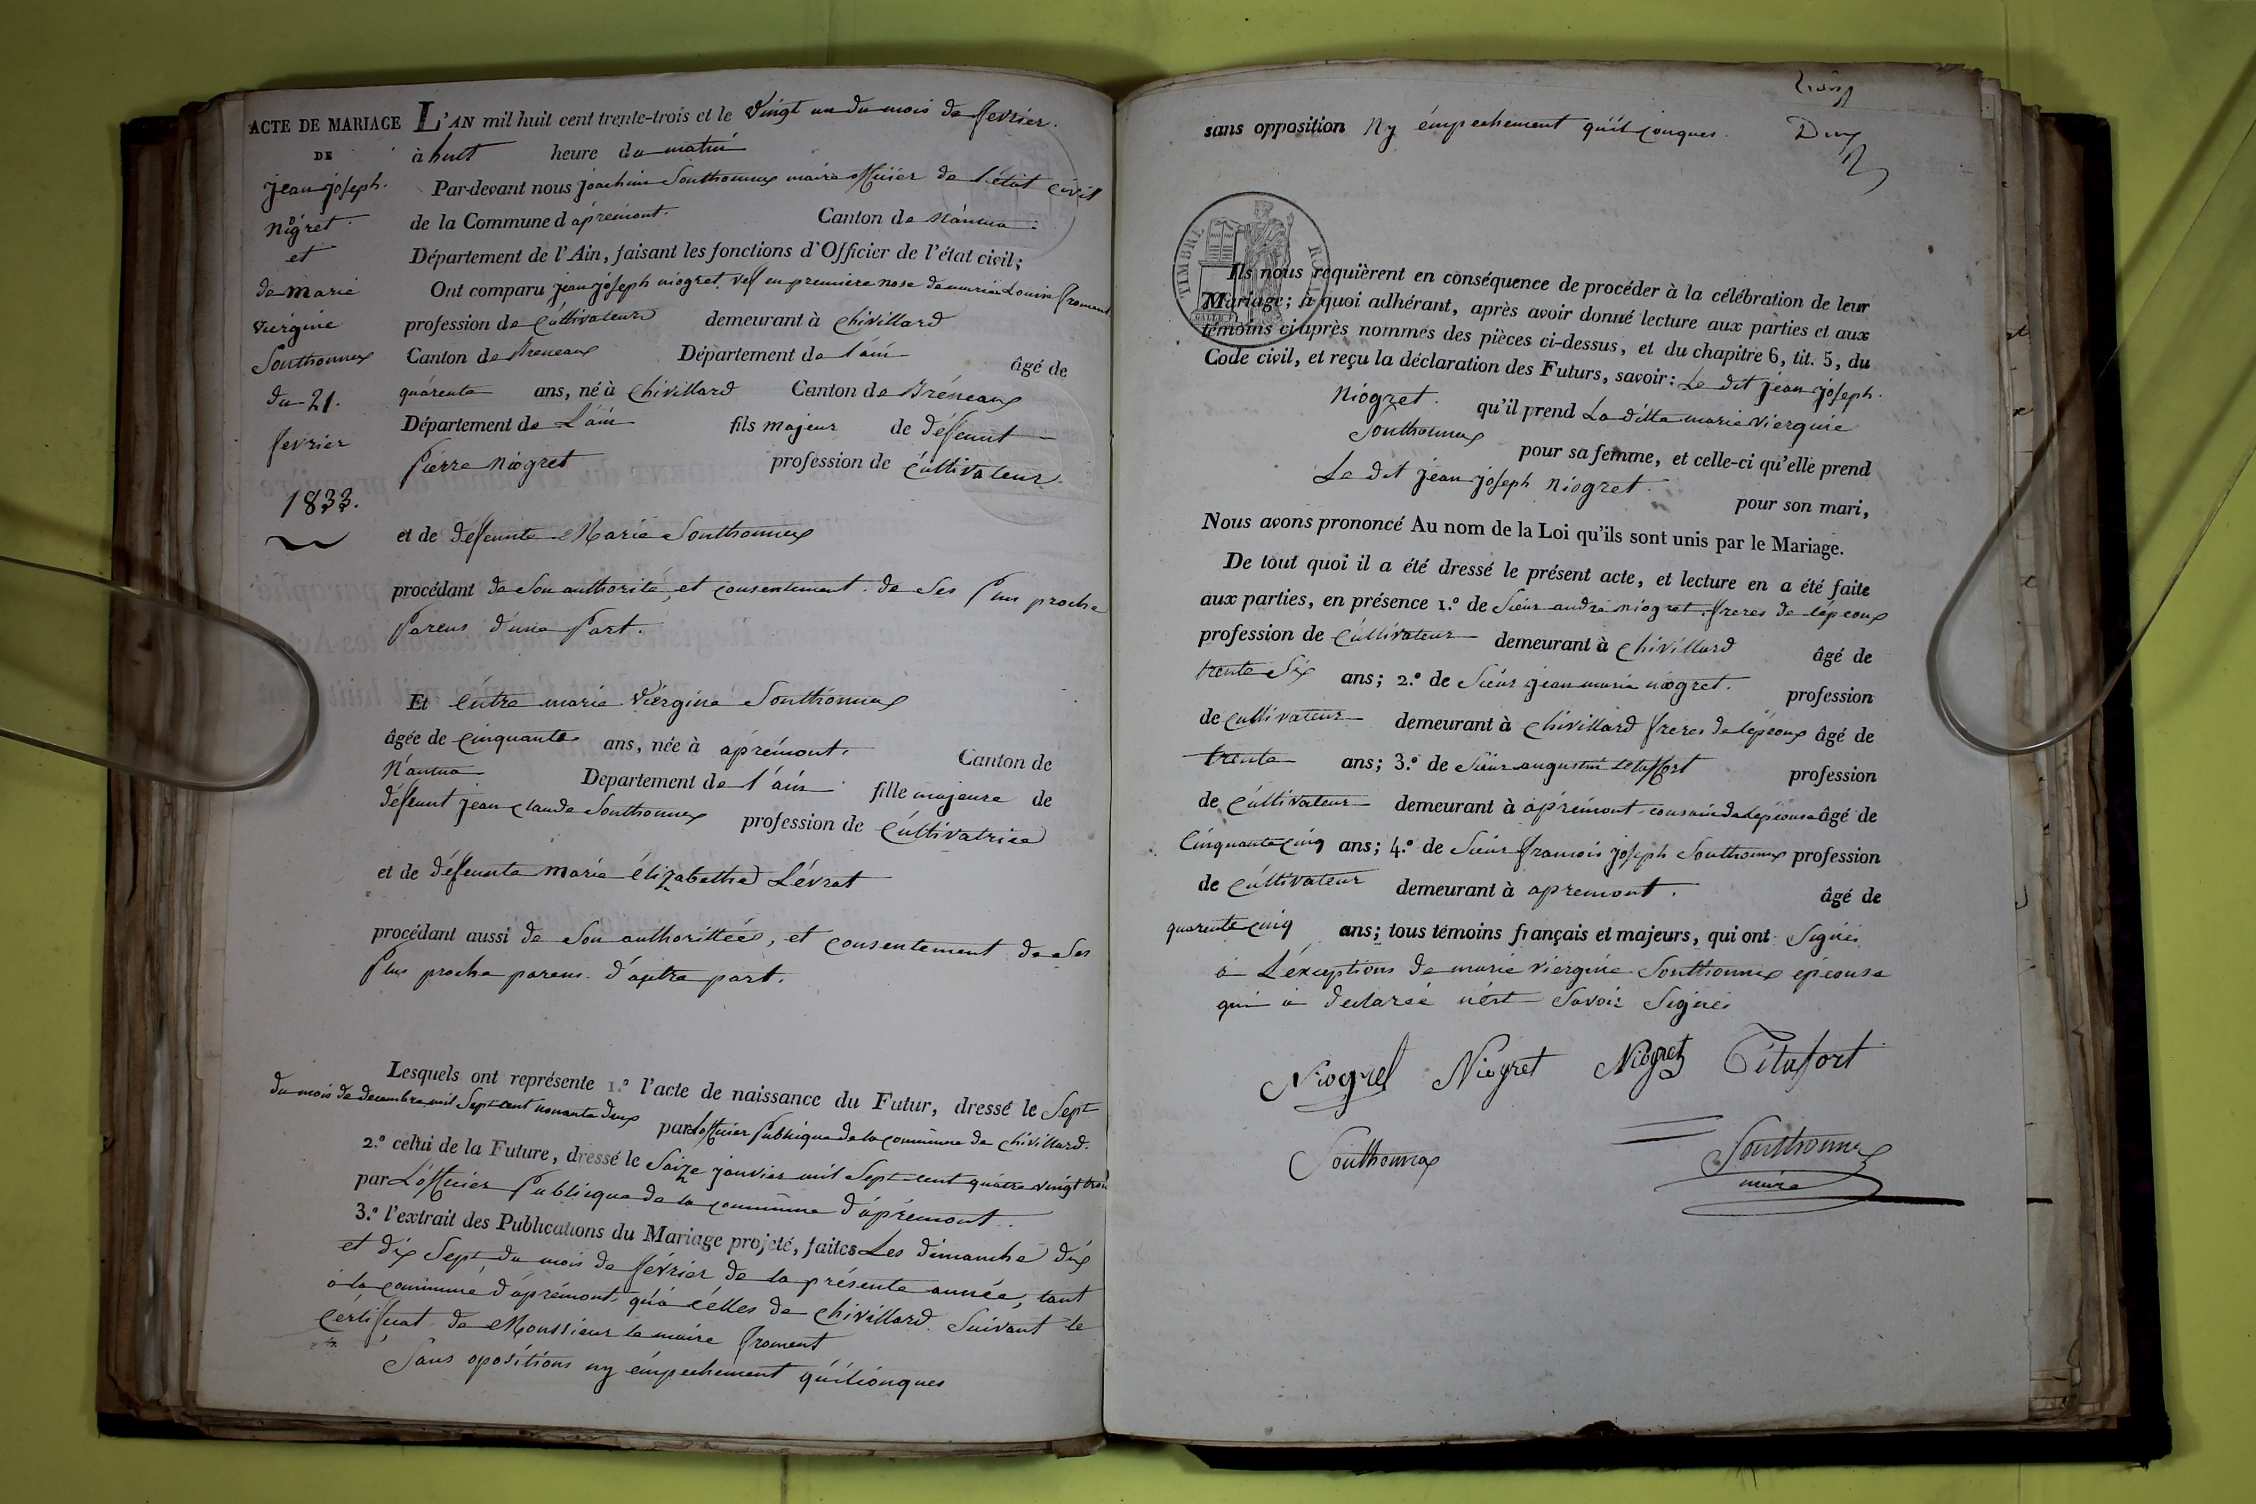 ACTE DE MARIAGE
DE
jean joseph
Niogret
et
de marie
viergine
Souttonnax
du 21.
fevrier
1833.
L'AN mil huit cent trente-trois et le vingt un du mois de fevrier.
à huit heure du matin
Par-devant nous joachim Souttonnax maire officier de l'état civil
de la Commune d'apremont. Canton de Nantua
Département de l'Ain, faisant les fonctions d'Officier de l'état civil;
Ont comparu jean joseph niogret vef en premiere nose de marie Louise froment
profession de cultivateur demeurant à Chivillard
Canton de Breneaux Département de l'ain âgé de
quarente ans, né à Chivillard Canton de Bréneaux
Département de L'ain fils majeur de deffeunt
pierre Niogret profession de cultivateur.
et de deffeunte Marie Souttonnax
procédant de son authorité, et consentement de ses plus proche
parens d'une part.
Et entre marie viergine Souttonnax
âgée de cinquante ans, née à apremont. Canton de
Nantua Departement de l'ain fille majeure de
deffeunt jean claude Souttonnax profession de cultivatrice
et de deffeunte marie élizabethe Lévrat
procédant aussi de son authorittée, et consentement de ses
plus proche parens d'autre part.
Lesquels ont représente 1.º l'acte de naissance du Futur, dressé le Sept
du mois de decembre mil sept cent nonante deux par L'officier publique de la commune de Chivillard.
2.º celui de la Future, dressé le saize janvier mil sept cent quatre vingt trois
par L'officier publique de la commune d'apremont.
3.º l'extrait des Publications du Mariage projeté, faites Les dimanche dix
et dix sept du mois de février de la présente année, tant
à la commune d'apremont, qu'à celles de Chivillard. Suivant le
certificat de Monssieur le maire froment
Sans opositions ny émpechement quélionques
sans opposition Ny émpechement quélconques.
Deux
TIMBRE ROYAL
Ils nous requièrent en conséquence de procéder à la célébration de leur
Mariage; à quoi adhérant, après avoir donné lecture aux parties et aux
témoins ci-après nommés des pièces ci-dessus, et du chapitre 6, tit. 5, du
Code civil, et reçu la déclaration des Futurs, savoir: Le dit jean joseph
Niogret. qu'il prend La ditte marie viergine
Souttonnax pour sa femme, et celle-ci qu'elle prend
Le dit jean joseph Niogret pour son mari,
Nous avons prononcé Au nom de la Loi qu'ils sont unis par le Mariage.
De tout quoi il a été dressé le présent acte, et lecture en a été faite
aux parties, en présence 1.º de Sieur andré niogret, freres de l'épeoux
profession de cultivateur demeurant à Chivillard âgé de
trente Six ans; 2.º de Sieur jean marie niogret. profession
de cultivateur demeurant à Chivillard freres de l'épeoux âgé de
trente ans; 3.º de Sieur augustin profession
de cultivateur demeurant à apremont cousin de l'épeouse âgé de
Cinquante cinq ans; 4.º de Sieur francois joseph Souttonnax profession
de cultivateur demeurant à apremont. âgé de
quarente cinq ans; tous témoins français et majeurs, qui ont Signés
à L'éxceptions de marie viergine Souttonnax épeouse
qui à declarée n'ért savoir Signés
Niogret Niogret Niogret Titaffort
Souttonnax Souttonnax
maire